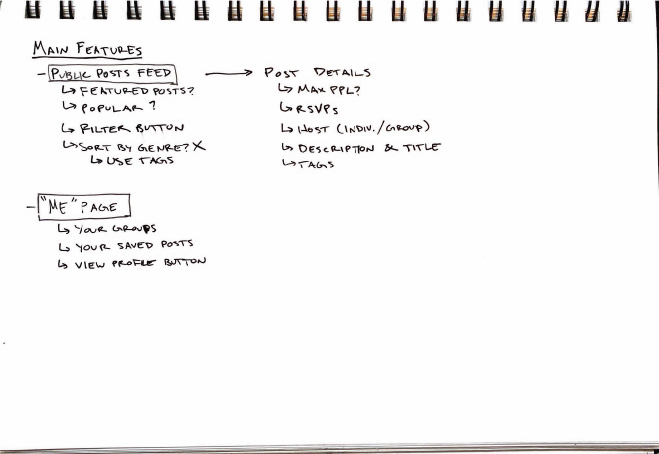 MAIN FEATURES
- PUBLIC POSTS FEED → POST DETAILS
↳ FEATURED POSTS?
↳ POPULAR?
↳ FILTER BUTTON
↳ SORT BY GENRE? X
↳ USE TAGS
↳ MAX PPL?
↳ RSVPs
↳ HOST (INDIV./GROUP)
↳ DESCRIPTION & TITLE
↳ TAGS
- "ME" PAGE
↳ YOUR GROUPS
↳ YOUR SAVED POSTS
↳ VIEW PROFILE BUTTON